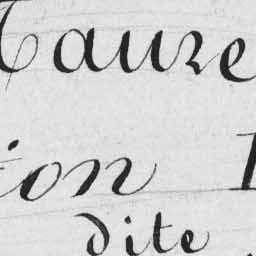 Tauze
ion
dite